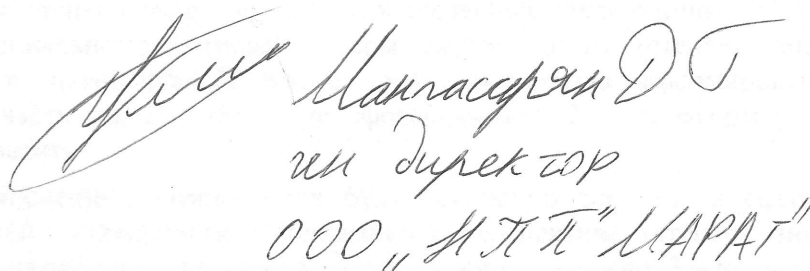 Мангасарян Д Г
ген директор
ООО „НПП "МАРАТ"